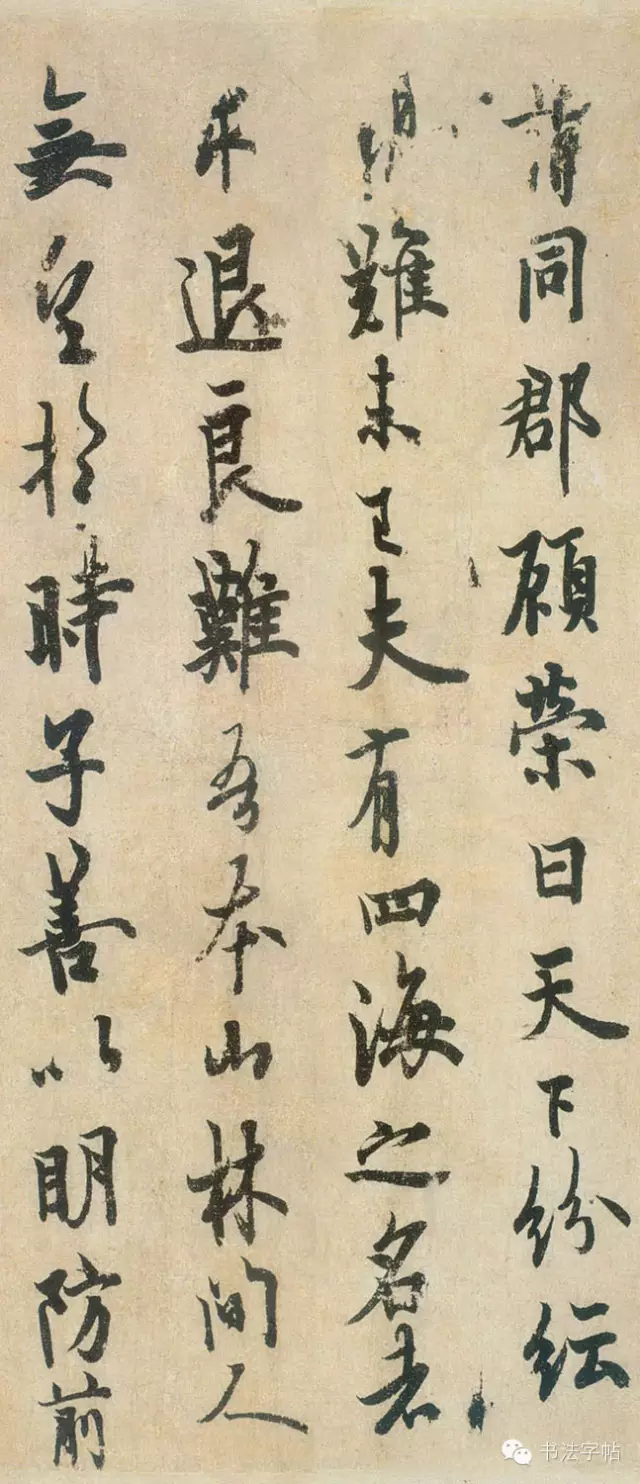 謂同郡顧榮曰天下紛紜
難未已夫有四海之名者
求退良難吾本山林間人
無望於時子善以明防前
书法字帖